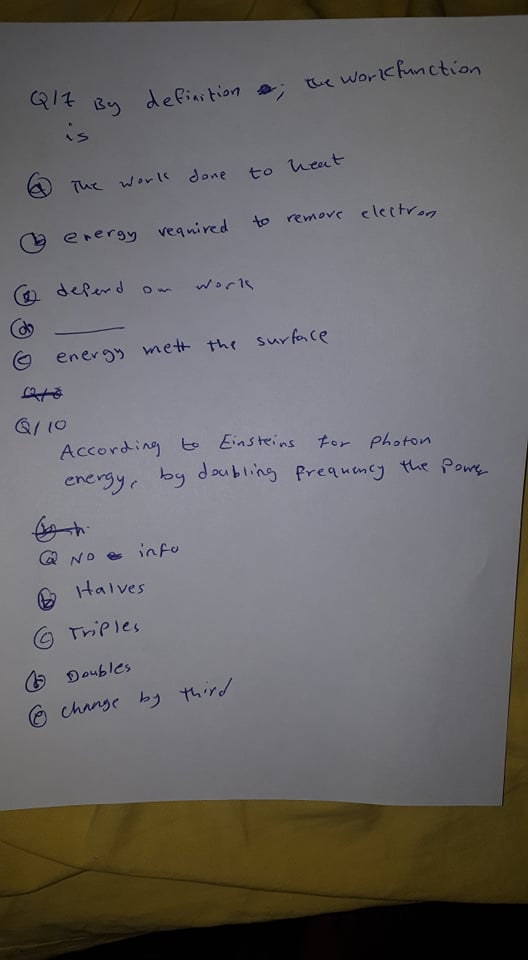 Q/7 By definition ; the workfunction
is
(a) The work done to heat
(b) energy required to remove electron
(c) defend on work
(d) ______
(e) energy mett the surface
Q/10
According to Einsteins for photon
energy, by doubling frequency the Power
(a) No info
(b) Halves
(c) Triples
(d) Doubles
(e) change by third